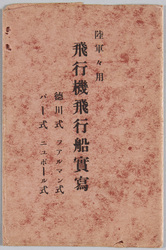 陸軍々用
飛行機飛行船實寫
徳川式 ファルマン式
パー式 ニューポール式